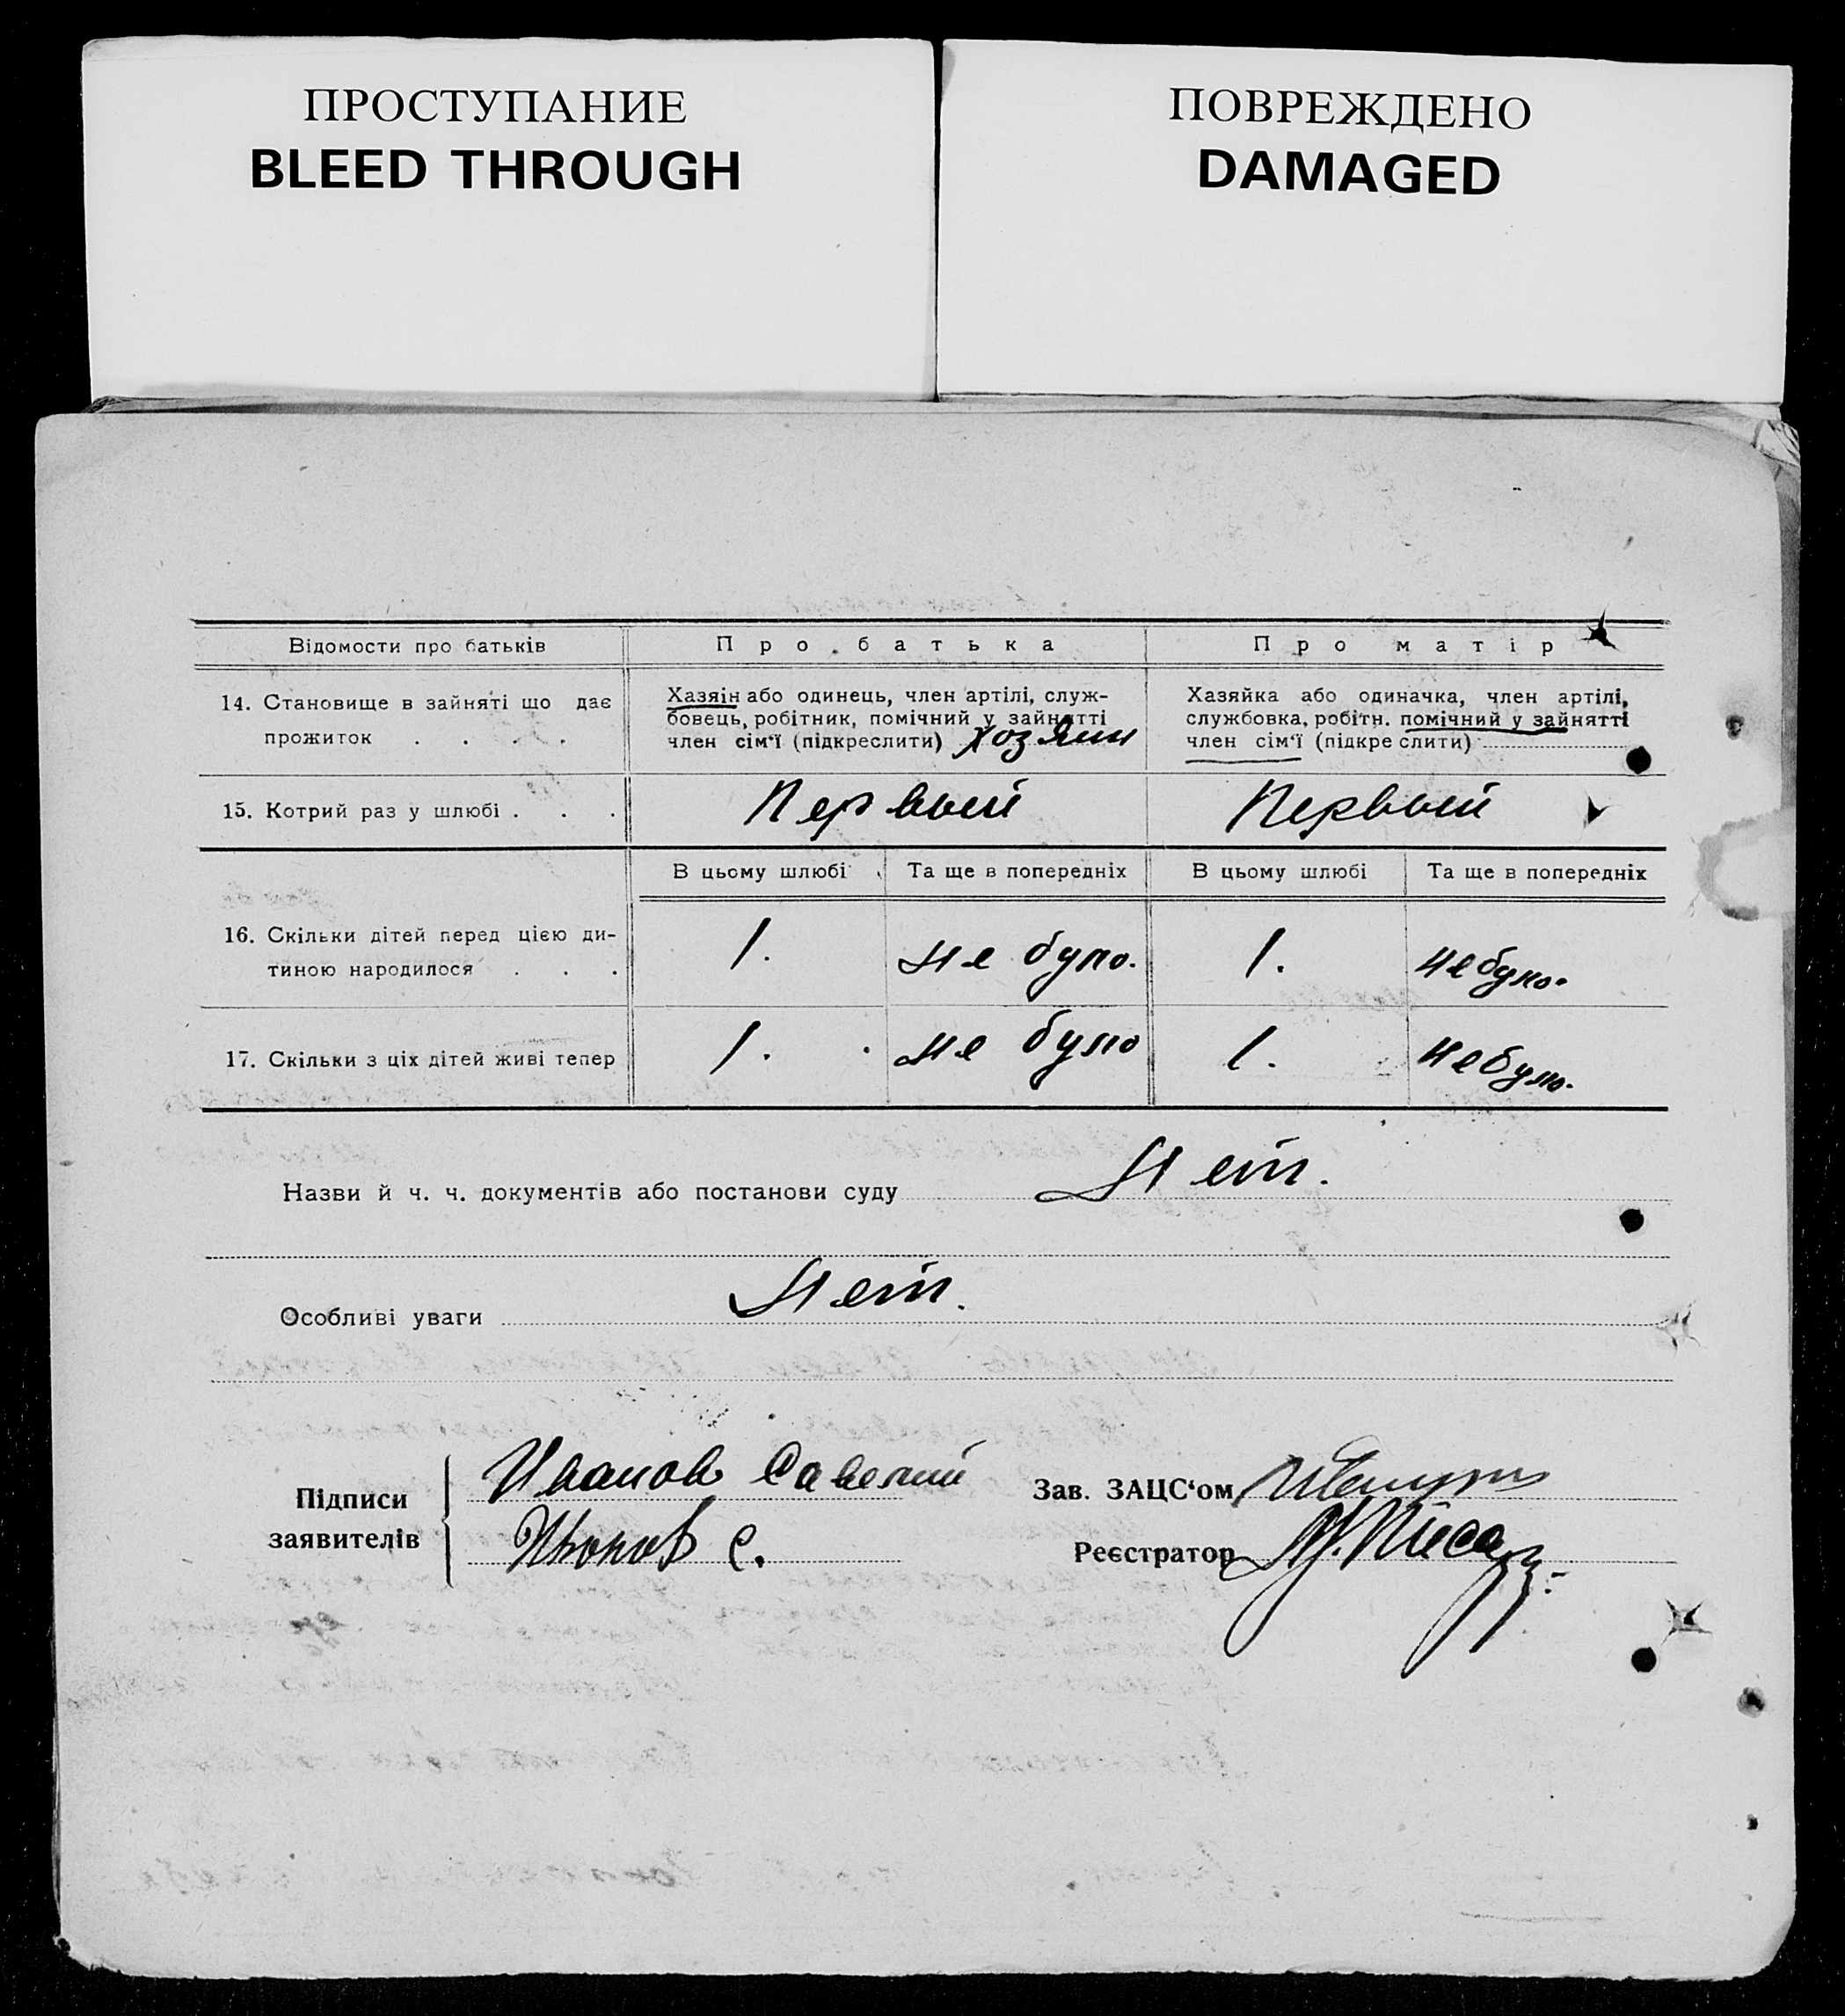 ПРОСТУПАНИЕ
BLEED THROUGH
ПОВРЕЖДЕНО
DAMAGED
Відомости про батьків
Про батька
Про матір
14. Становище в зайняті що дає
прожиток . . . .
Хазяін або одинець, член артілі, служ-
бовець, робітник, помічний у зайнятті
член сім'ї (підкреслити) хозяин
Хазяйка або одиначка, член артілі,
службовка, робітн. помічний у зайнятті
член сім'ї (підкре слити)
15. Котрий раз у шлюбі . . .
Первый
Первый
В цьому шлюбі
Та ще в попередніх
В цьому шлюбі
Та ще в попередніх
16. Скільки дітей перед цією ди-
тиною народилося . . .
1.
не було.
1.
не було.
17. Скільки з ціх дітей живі тепер
1.
не було
1.
не було.
Назви й ч. ч. документів або постанови суду Нет.
Особливі уваги Нет.
Підписи
заявителів
Иванов Савелий
Иванов С.
Зав. ЗАЦС'ом
Реєстратор